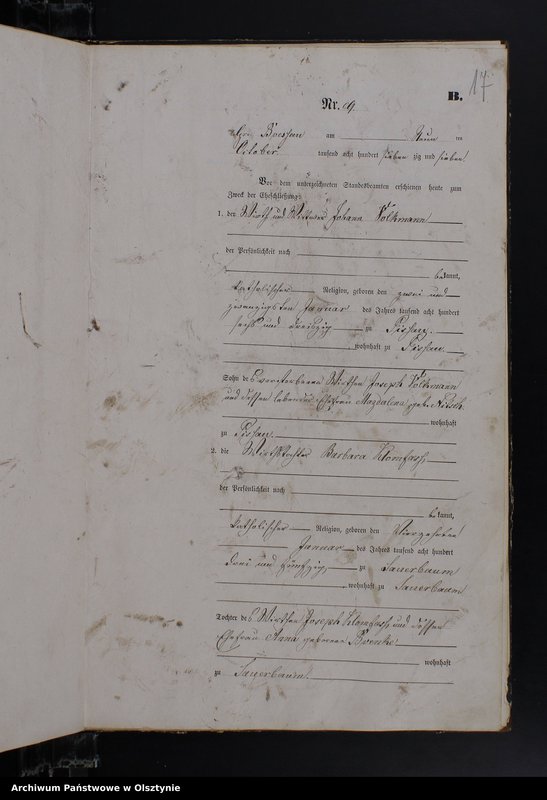 17
B.
Nr. 19
Boessau am Neun ten
October tausend acht hundert sieben zig und sieben
Vor dem unterzeichneten Standesbeamten erschienen heute zum
Zweck der Eheschließung:
1. der Wirth und Wittwer Johann Volkmann
der Persönlichkeit nach
bekannt,
katholischer Religion, geboren den zwei und
zwanzigsten Januar des Jahres tausend acht hundert
sechs und dreißig zu Pissau
, wohnhaft zu Pissau
Sohn des verstorbenen Wirthen Joseph Volkmann
und dessen lebender Ehefrau Magdalena geb.
wohnhaft
zu Pissau
2. die Wirthstochter Barbara Klomfass,
der Persönlichkeit nach
bekannt,
katholischer Religion, geboren den Vierzehnten
Januar des Jahres tausend acht hundert
drei und fünfzig, zu Sauerbaum
, wohnhaft zu Sauerbaum
Tochter des Wirthen Joseph Klomfass und dessen
Ehefrau Anna geborenen
wohnhaft
zu Sauerbaum.
Archiwum Państwowe w Olsztynie